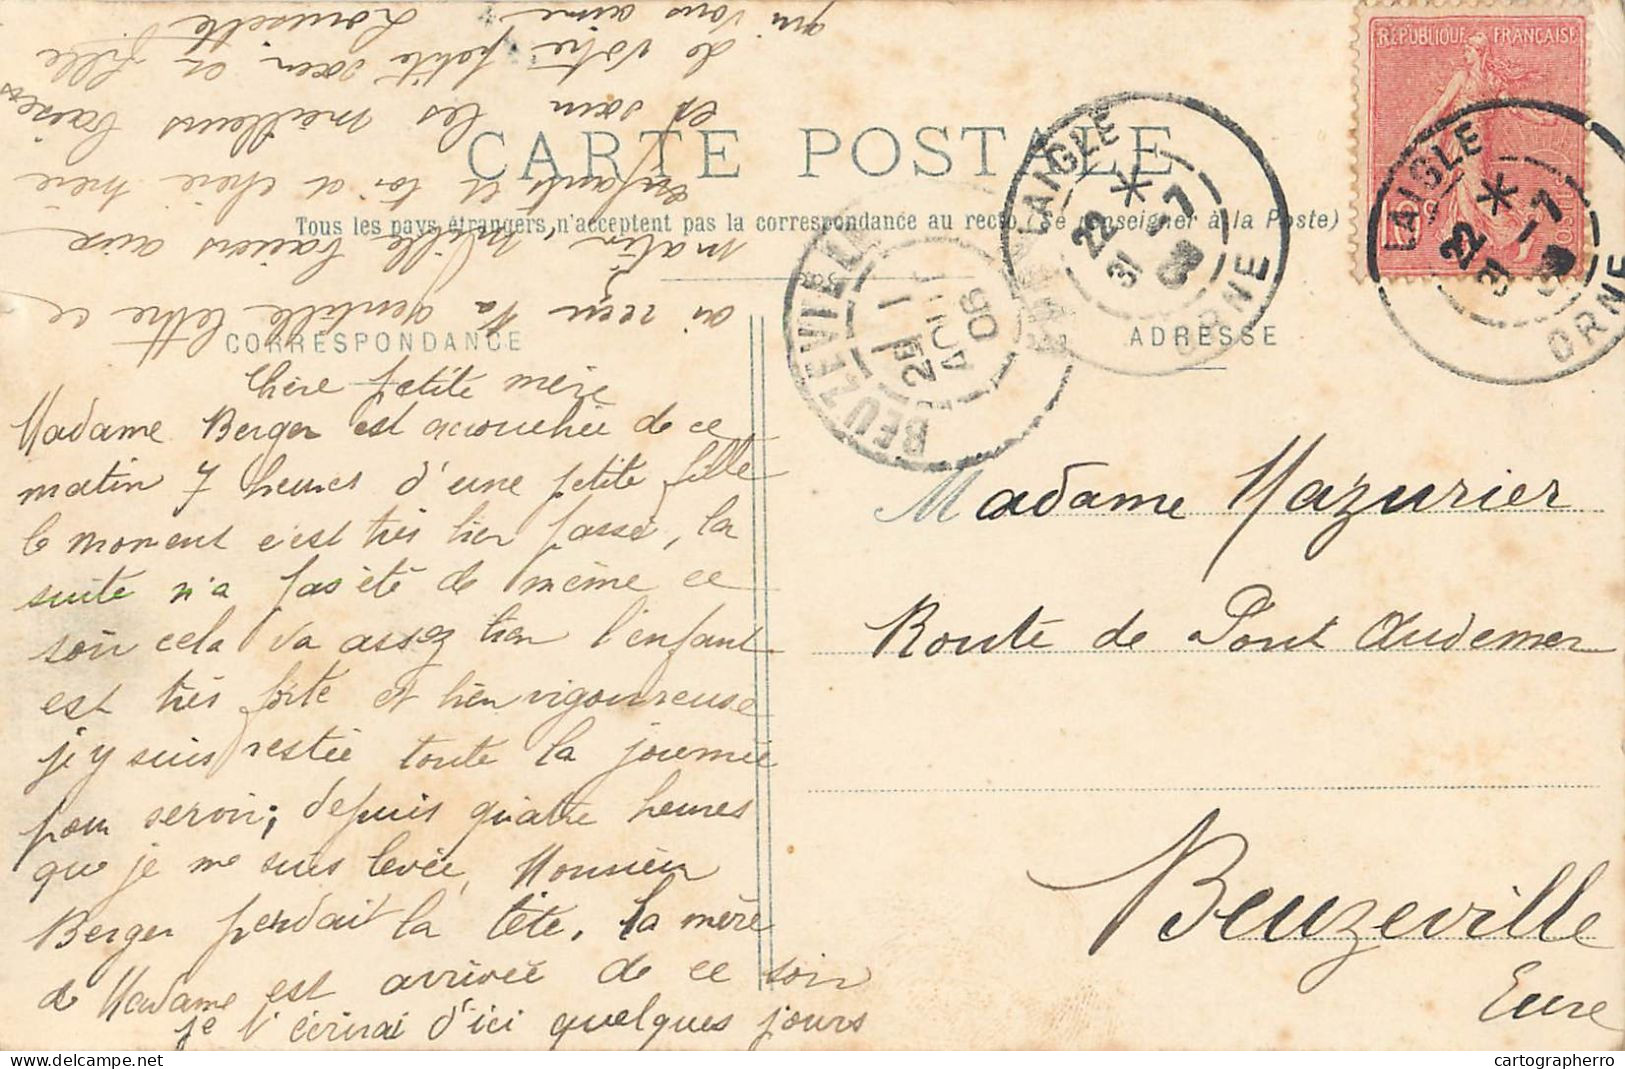 CARTE POSTALE
Tous les pays étrangers n'acceptent pas la correspondance au recto (Se renseigner à la Poste)
CORRESPONDANCE
ADRESSE
RÉPUBLIQUE FRANÇAISE
LAIGLE
22 *
31 -7
ORNE
LAIGLE
22 *
31 -7
ORNE
BEUZEVILLE
29 1
AOUT
06
Chère petite mère
Madame Berger est accouchée de ce
matin 7 heures d'une petite fille
le moment c'est très bien passé, la
suite n'a pas été de même ce
soir cela va assez bien l'enfant
est très forte et bien vigoureuse
j'y suis restée toute la journée
pour servir; depuis quatre heures
que je me suis levée, Monsieur
Berger perdait la tête. la mère
de Madame est arrivée de ce soir
je t'écrirai d'ici quelques jours
ai reçu ta gentille lettre ce
matin, mille baisers aux
enfants et toi et chère mère
et soir les meilleurs baisers
de votre petite sœur et fille
qui vous aime Lousette
Madame Mazurier
Route de Pont Audemer
Beuzeville
Eure
cartographerro